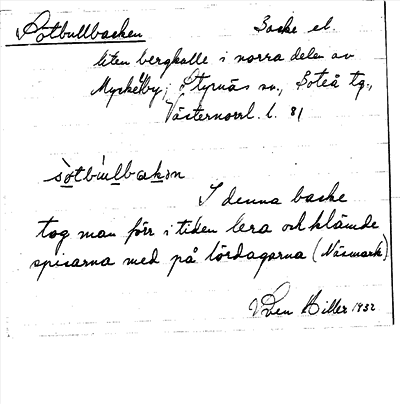 Sötbullbacken Backe el.
liten bergkalle i norra delen av
Myckelby; Styrnäs sn., Boteå tg.,
Västernorrl. l. 81
sötbullbakən
I denna backe
tog man förr i tiden lera och klämde
spisarna med på lördagarna (Näsmark)
Hiller 1932